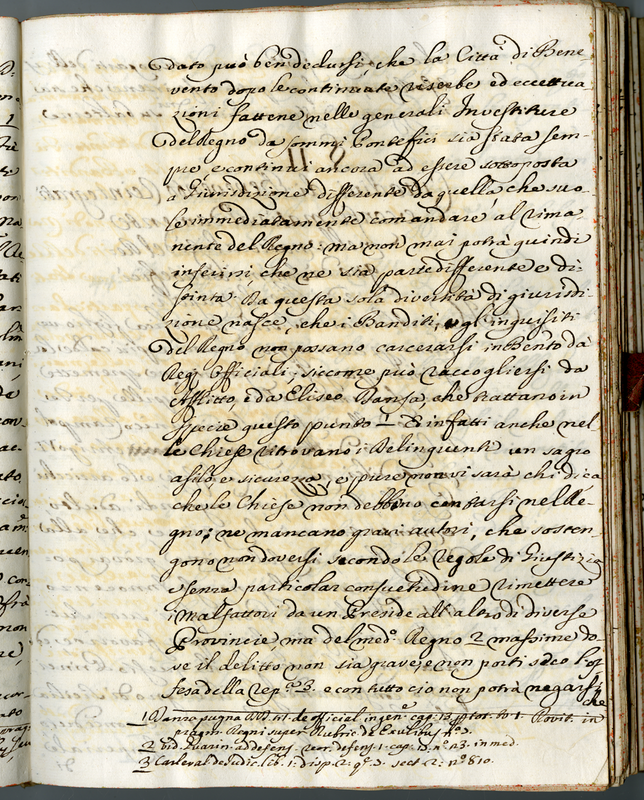 dato può ben dedursi, che la Città di Bene-
vento dopo le continuate riserbe ed eccettua
zioni fattene nelle generali Investiture
del Regno da sommi Pontefici sia stata sem-
pre, e continui ancora ad essere sottoposta
a Giurisdizione differente da quella, che suo-
le immediatamente comandare al rima
nente del Regno: ma non mai potrà quindi
inferirsi, che ne sia parte differente e di-
stinta. Da questa sola diversità di giurisdi-
zione nasce, che i Banditi, o gl'inquisiti
del Regno non possano carcerarsi in Bento da
Regj Officiali; siccome può raccogliersi da
Afflitto, e da Eliseo Danza che trattano in
specie questo punto 1 E infatti anche nel
le Chiese ritrovano i Delinquenti un sagro
asilo e sicurezza, e pure non vi sarà chi dica
che le Chiese non debbano contarsi nel Re-
gno; ne mancano gravi autori, che sosten-
gono non doversi secondo le regole di Giustizia
e senza particolar consuetudine rimettere
i malfattori da un Preside all'altro di diverse
Provincie, ma del med.º Regno 2 massime do-
ve il delitto non sia grave, e non porti seco l'of
fesa della Rep.ca 3. e con tutto ciò non potrà negarsi,
che
1 Danza pugna de official in gen.e cap. tot. to. 1. Rovit. in
pragm. Regni super Rubric. de Exulibus n.º
2 Guarin. ad defens. reor. defens. 1. cap. n.º 23. in med.
3 Carleval de Judic. lib. 1. disp. 2. q. sect. 2. nº 810.